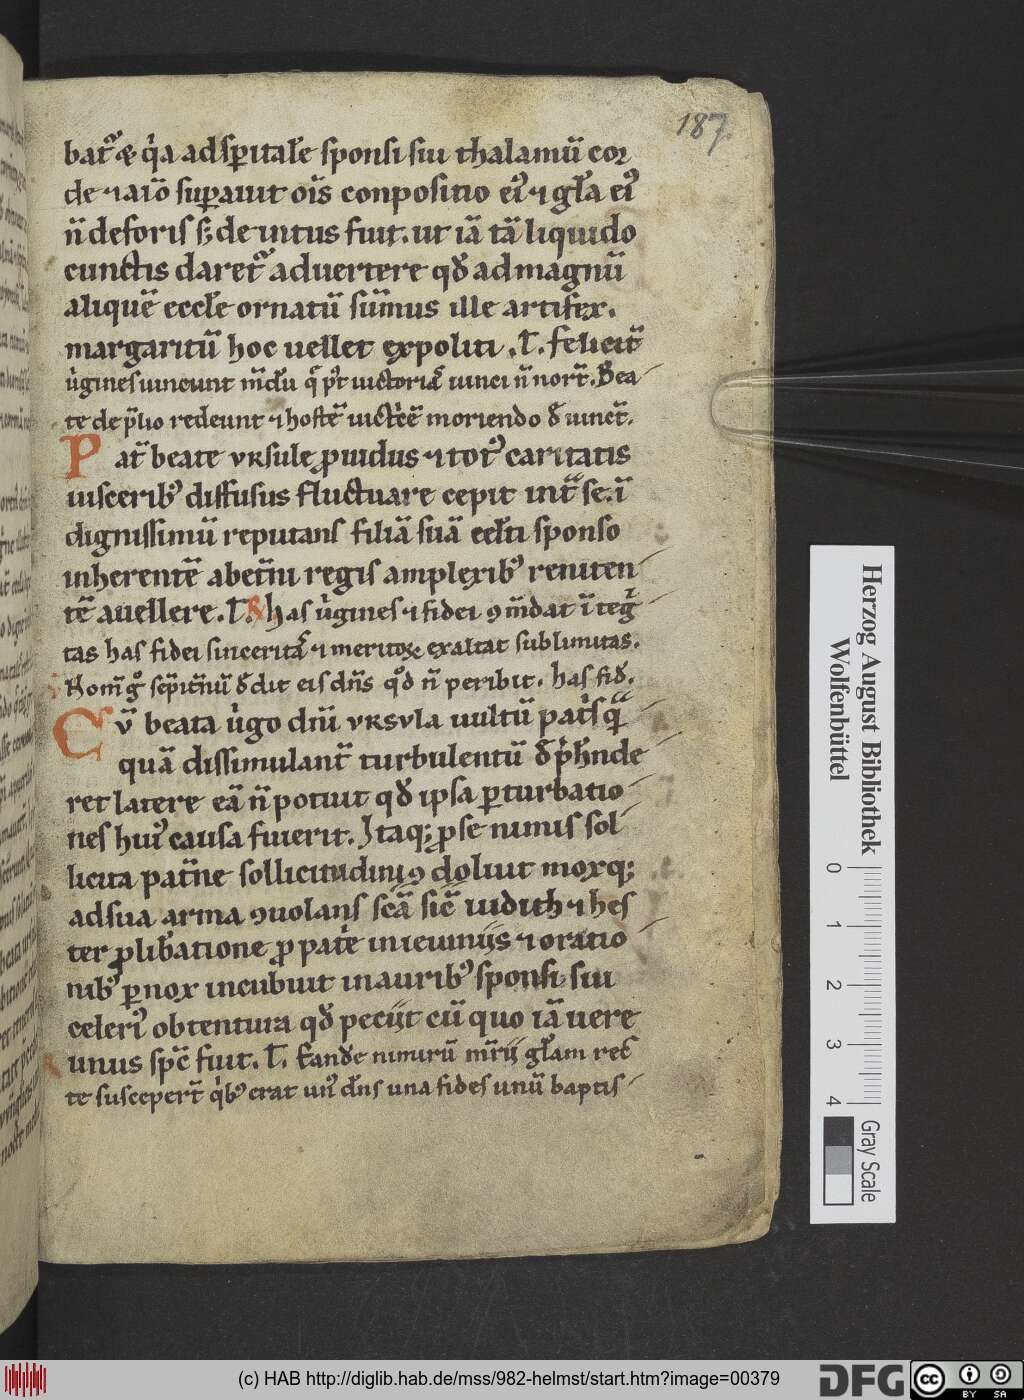 187
bat᷒ & q̇a ad sp̅itale̅ sponsi sui thalamū cor
de ⁊ aīo sup̱auit oīs conpositio ei᷒ ⁊ gl̅a ei᷒
n̄ deforis s; de intus fuit. ut iā tā liquido
cunctis daret᷒ aduertere qđ ad magnū
aliquē eccle̅ ornatū sūmus ille artifex.
margaritū hoc uellet expoliri.
te de p̄lio redeunt ⁊ hostē
moriendo
Pat̅ beate vrsule ꝓuidus ⁊ tot᷒ caritatis
uiscerib᷒ diffusus fluctuare cepit int̅ se. ī
dignissimū reputans filiā suā celesti sponso
inherentē abet̅ni regis amplexib᷒ reniten
tē auellere. V̅. Has u̇gines ⁊ fidei ꝯm̄dat īteg̅
tas has fidei sincerita᷒ ⁊ meritoꝝ exaltat sublimitas.
dn̄s qd̊ n̄ peribit. has fid̅.
Cū beata u̇go dn̄i vrsvla uultū pat̅s
quā dissimulant̅ turbulentū
ret latere eā n̄ potuit qđ ipsa ꝑturbatio
nes hui᷒ causa fuerit. Itaq; ꝓ se nimis sol
licita pat̅ne sollicitudini ꝯdoluit moxq;
ad sua arma ꝯuolans scā sic̅ iudith ⁊ hes
ter ꝓ libatione ꝓ pat̅e in ieiuniis ⁊ oratio
nib᷒ ꝑnox incubuit in aurib᷒ sponsi sui
celeri᷒ obtentura qđ peciit cū quo iā uere
unus sp̄c fuit. V̅. Eande nimirū
gl̅am
te suscepert̅ q̇b᷒ erat un᷒ dn̄s una fides unū baptis
Herzog August Bibliothek
Wolfenbüttel
0 1 2 3 4
Gray Scale
(c) HAB http://diglib.hab.de/mss/982-helmst/start.htm?image=00379
DFG
cc BY SA